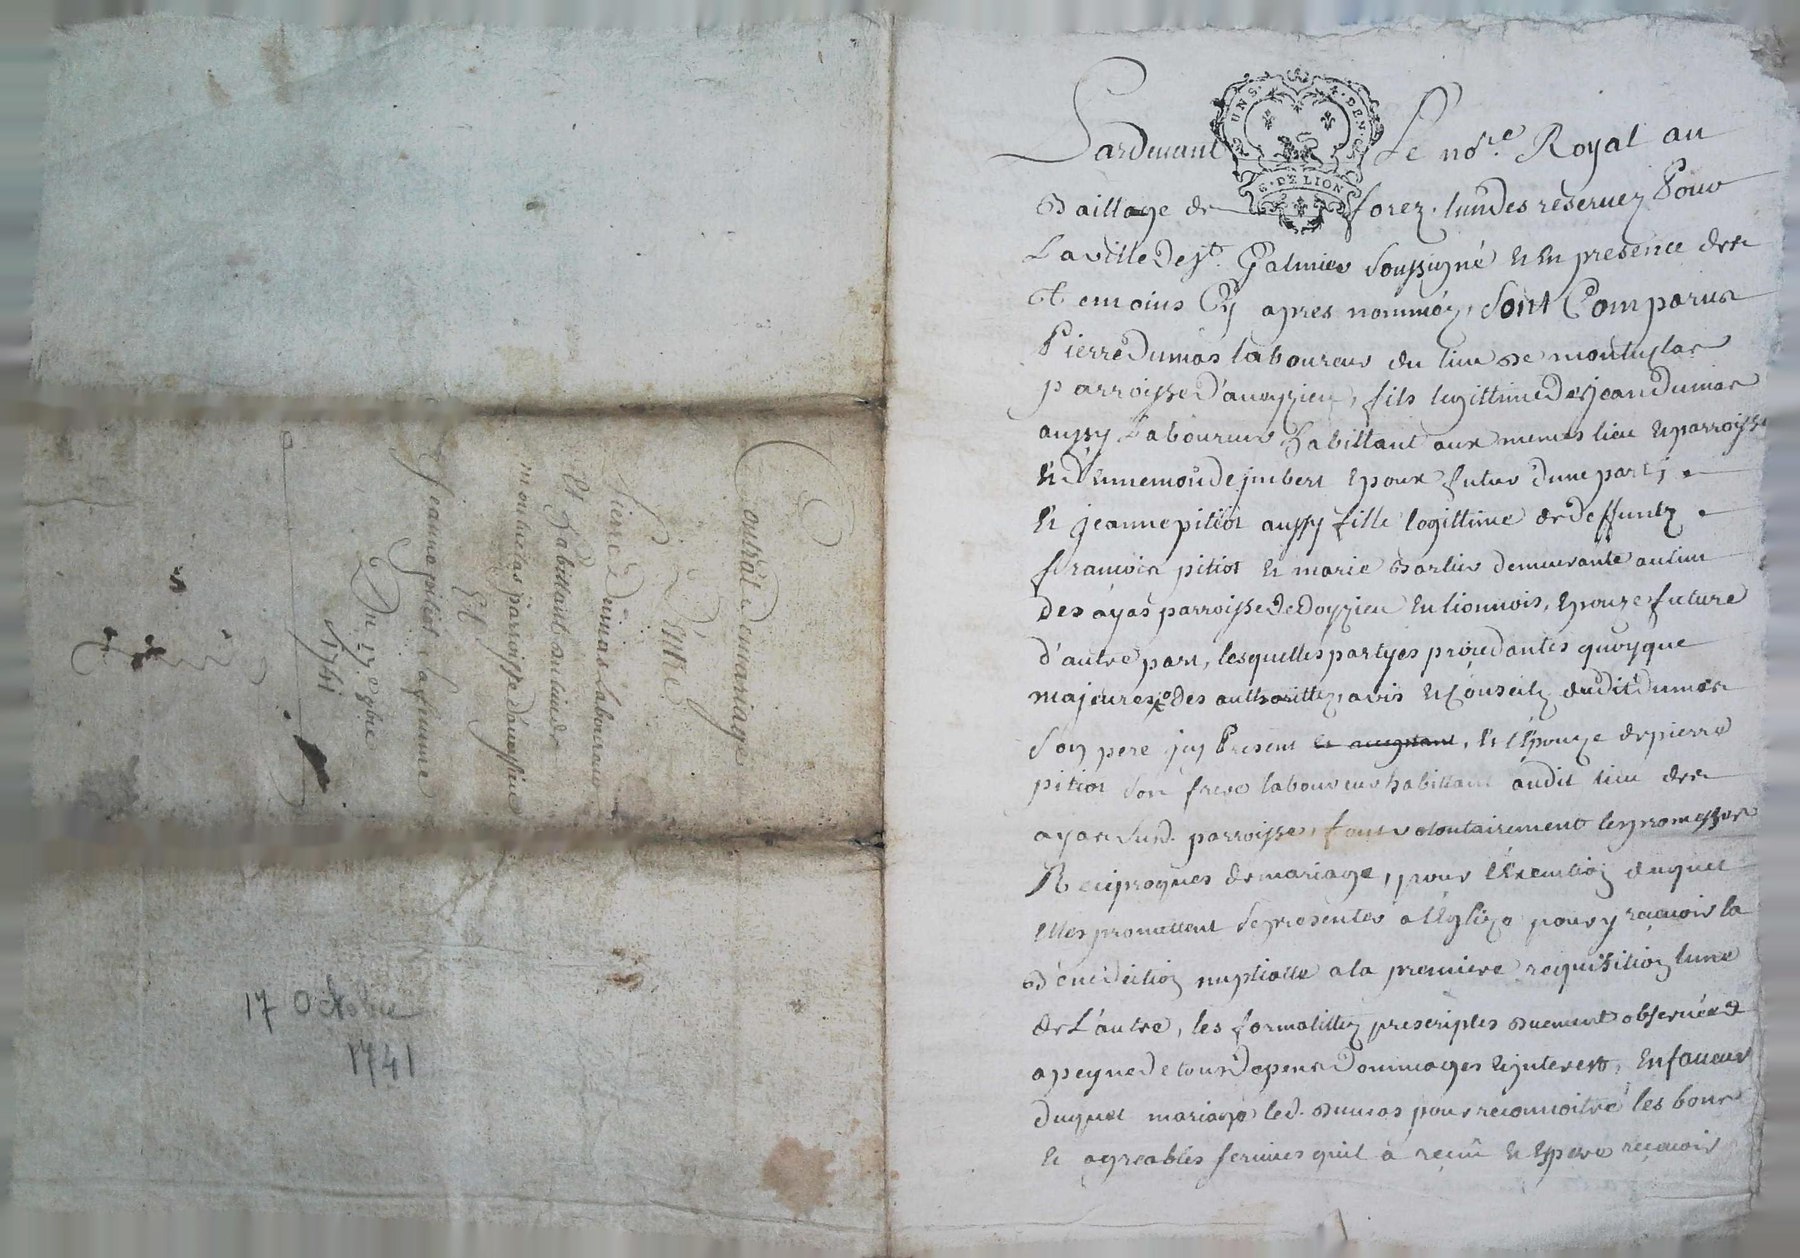 Contrat de mariage
D'Entre
Pierre Dumas Laboureur
Et habittant du lieu de
montuclas parroisse d'aveysieu
Et
Jeanne pitiot sa femme
Du 17e 8bre
1741
17 Octobre
1741
UN S. DEN.
G. DE LION
Pardevant Le nore. Royal au
Bailliage de forez, lun des reservez Pour
La ville de St. Galmier soussigné et En presence des
temoins Cy apres nommés, sont Comparus
Pierre Dumas laboureur du lieu de montuclas
parroisse D'aveyzieu, fils legittime de jean Dumas
aussy Laboureur habittant aux memes lieu et parroisse
et D'ennemonde jmbert Epoux futur d'une part,
Et jeanne pitiot aussy fille legittime de deffuntz
françois pitiot et marie barlier demeurante au lieu
des ayas parroisse de Doyzieu en lionnois, Epouze future
d'autre part, lesquelles partyes procedantes quoyque
majeures des authorittez, avis et Conseils dudit Dumas
son pere jcy Present et acceptant, et l'Epouze de pierre
pitiot son frere laboureur habittant audit lieu des
ayas susd. parroisse, font volontairement les promesses
Reciproques de mariage, pour l'Execution duquel
Elles promettent se presenter a l'Eglize pour y recevoir la
benediction nuptialle a la premiere requisition lune
de L'autre, les formalittez prescriptes duement observées
a peyne de tous depens Dommages et jnterest, En faveur
duquel mariage led. Dumas pour reconnoitre les bons
et agreables services quil à reçeû et Espere recevoir